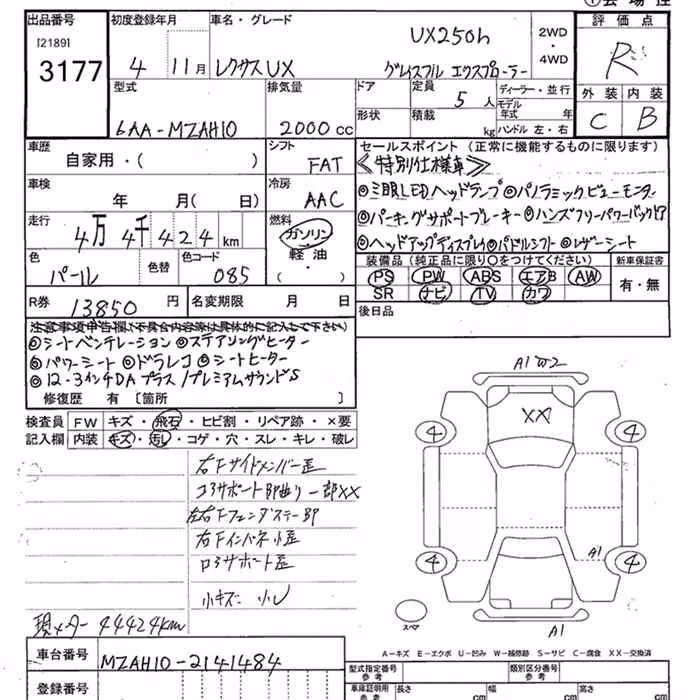 出品番号
[2189]
3177
初度登録年月
4 11月
車名・グレード
UX250h
レクサスUX
グレイスフル エクスプローラー
2WD
・
4WD
評価点
R
外装 内装
C B
型式
6AA-MZAH10
排気量
2000cc
ドア
定員 5人
形状
積載 kg
ディーラー・並行
モデル年式 年
ハンドル 左・右
車歴
自家用・( )
シフト
FAT
車検
年 月( 日)
冷房
AAC
走行
4万4千424km
燃料
ガソリン
軽油
( )
色
パール
色替
色コード
085
R券
13850円
名変期限 月 日
セールスポイント (正常に機能するものに限ります)
《特別仕様車》
◎三眼LEDヘッドランプ◎パノラミックビューモニター
◎パーキングサポートブレーキー◎ハンズフリーパワーバックドア
◎ヘッドアップディスプレイ◎パドルシフト◎レザーシート
装備品 (純正品に限り○をつけてください)
PS PW ABS エアB AW
SR ナビ TV カワ
新車保証書
有・無
後日品
◎シートベンテレーション◎ステアリングヒーター
◎パワーシート◎ドラレコ◎シートヒーター
◎12.3インチDAプラス/プレミアムサウンドS
修復歴 有 〔箇所 〕
検査員記入欄
FW キズ・飛石・ヒビ割・リペア跡・×要
内装 キズ・汚レ・コゲ・穴・スレ・キレ・破レ
右Fサイドメンバー歪
コアサポート部曲り一部XX
左右Fフェンダステー部
右Fインパネ小歪
ロアサポート歪
小キズ 小U
現メーター 44424km
A1 W2
XX
4 4
4 4
A1
A1
スペア
A-キズ E-エクボ U-凹み W-補修跡 S-サビ C-腐食 XX-交換済
車台番号
MZAH10-2141484
登録番号
型式指定番号
参考
類別区分番号
参考
車庫証明用
参考
長さ cm
幅 cm
高さ cm